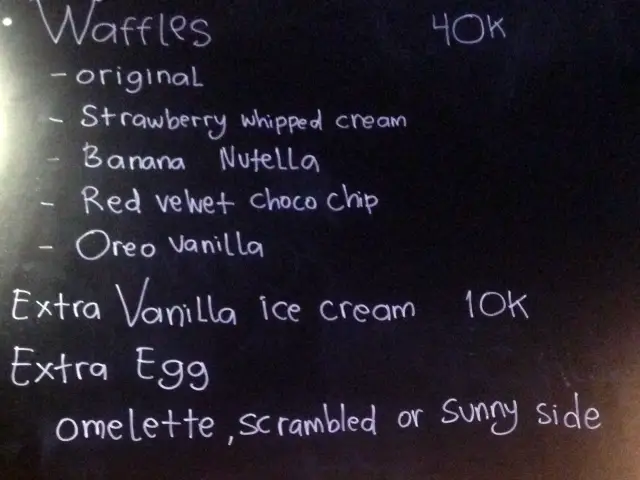 • Waffles 40K
- original
- Strawberry whipped cream
- Banana Nutella
- Red velvet choco chip
- Oreo vanilla
Extra Vanilla ice cream 10K
Extra Egg
omelette, scrambled or sunny side